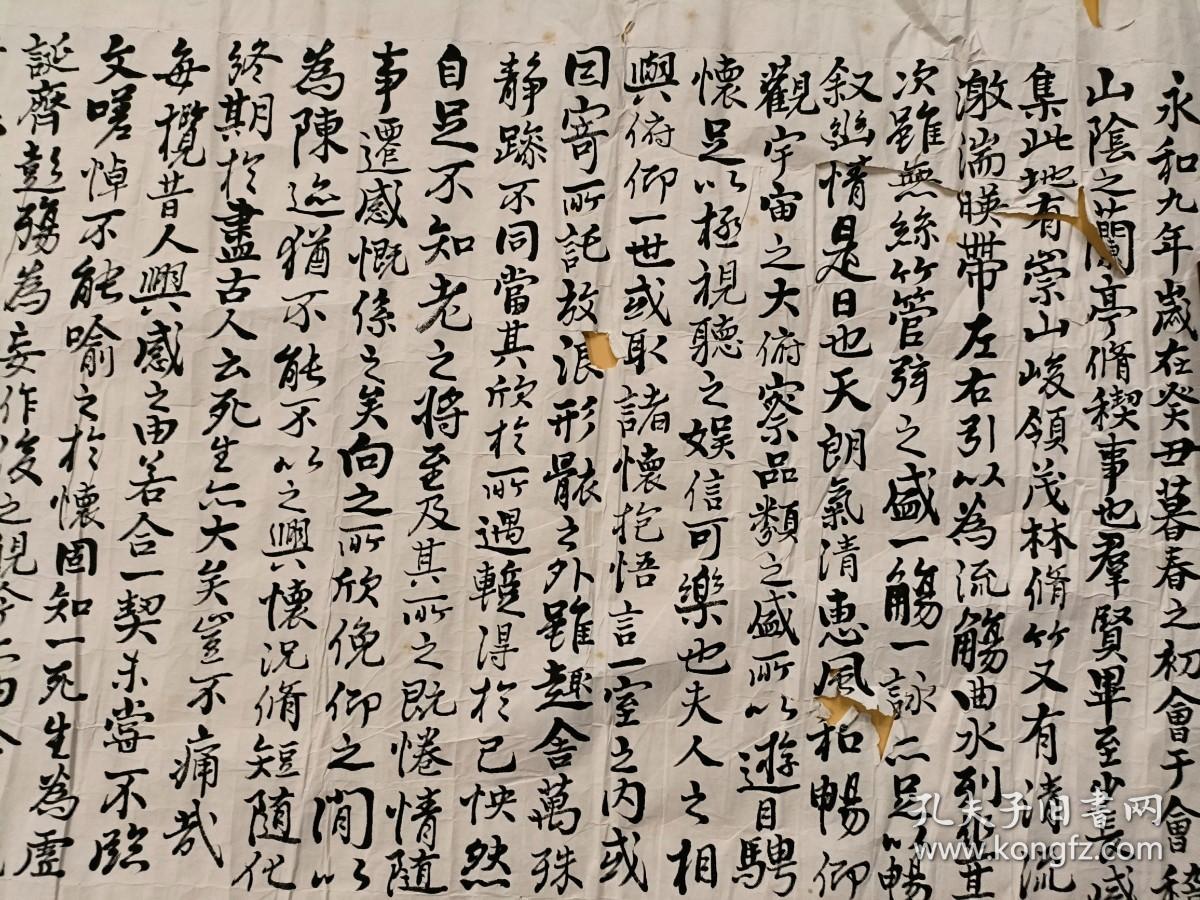 永和九年歲在癸丑暮春之初會于會稽
山陰之蘭亭脩稧事也羣賢畢至少長咸
集此地有崇山峻領茂林脩竹又有清流
激湍暎帶左右引以為流觴曲水列坐其
次雖無絲竹管弦之盛一觴一詠亦足以暢
叙幽情是日也天朗氣清惠風和暢仰
觀宇宙之大俯察品類之盛所以遊目騁
懷足以極視聽之娛信可樂也夫人之相
與俯仰一世或取諸懷抱悟言一室之内或
因寄所託放浪形骸之外雖趣舍萬殊
静躁不同當其欣於所遇蹔得於己怏然
自足不知老之將至及其所之既惓情隨
事遷感慨係之矣向之所欣俛仰之閒以
為陳迹猶不能不以之興懷況脩短隨化
終期於盡古人云死生亦大矣豈不痛哉
每攬昔人興感之由若合一契未嘗不臨
文嗟悼不能喻之於懷固知一死生為虛
誕齊彭殤為妄作後之視今
孔夫子旧书网
www.kongfz.com